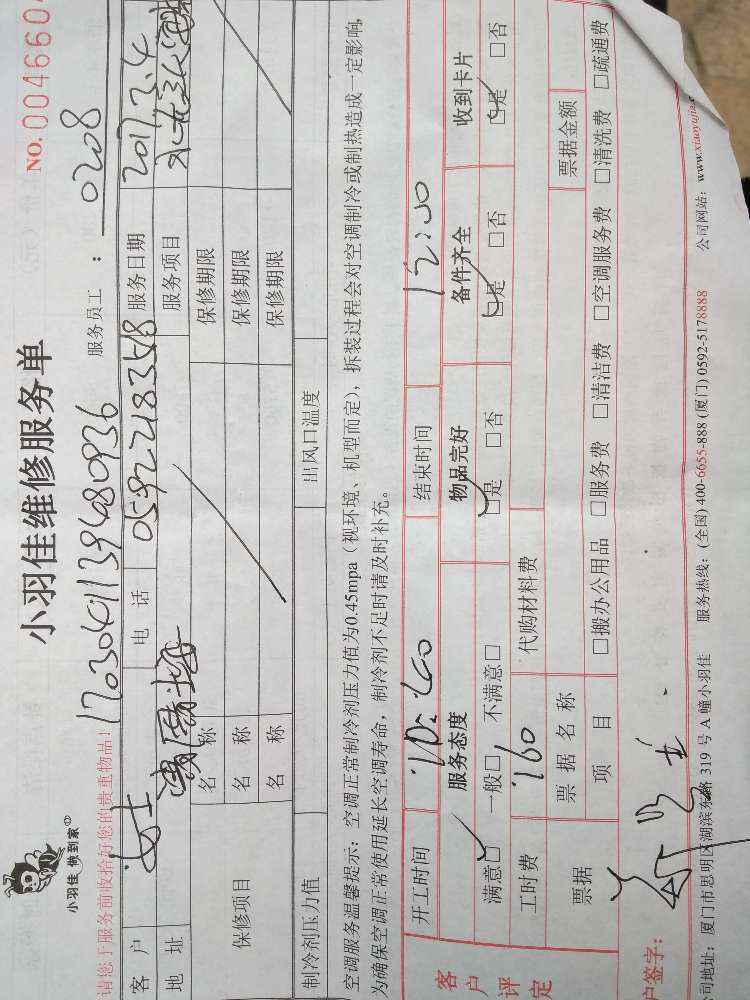 小羽佳 做到家
小羽佳维修服务单
NO.004660
请您于服务前收拾好您的贵重物品!
服务员工: 0208
客户 女士 电话 服务日期 2017.3.4
地址 服务项目
保修项目 名称 保修期限
名称 保修期限
名称 保修期限
制冷剂压力值 出风口温度
空调服务温馨提示: 空调正常制冷剂压力值为0.45mpa（视环境、机型而定），拆装过程会对空调制冷或制热造成一定影响，
为确保空调正常使用延长空调寿命，制冷剂不足时请及时补充。
客户评定
开工时间 结束时间
服务态度 物品完好 备件齐全 收到卡片
满意□ 一般□ 不满意□ □是 □否 □是 □否 □是 □否
工时费 160 代购材料费
票据 票据名称 票据金额
项目 □搬办公用品 □服务费 □清洁费 □空调服务费 □清洗费 □疏通费
户签字:
司地址: 厦门市思明区湖滨东路 319 号 A 幢小羽佳 服务热线: (全国) 400-6655-888 (厦门) 0592-5178888 公司网站: www.xiaoyujia.